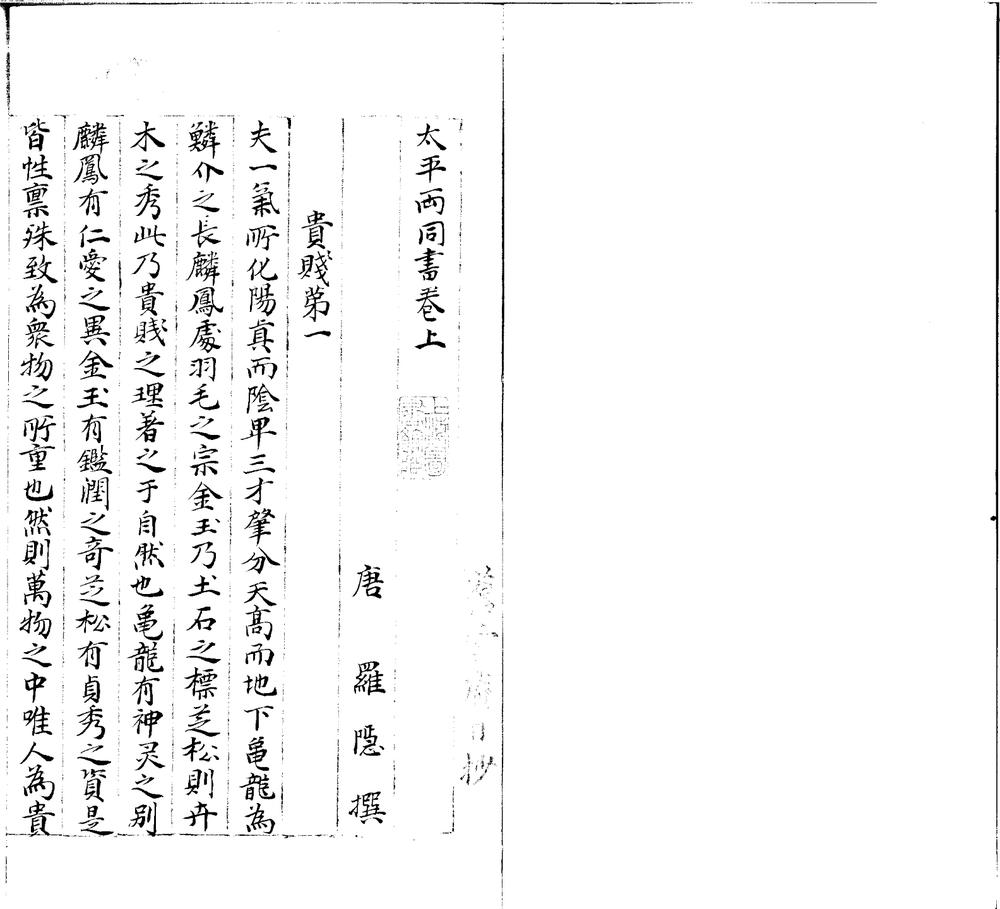 太平兩同書卷上
唐 羅隱 撰
貴賤第一
夫一氣所化陽真而陰卑三才肇分天高而地下龜龍為
鱗介之長麟鳳處羽毛之宗金玉乃土石之標芝松則卉
木之秀此乃貴賤之理著之于自然也龜龍有神灵之别
麟鳳有仁愛之異金玉有鑑潤之奇芝松有貞秀之資是
皆性禀殊致為衆物之所重也然則萬物之中唯人為貴